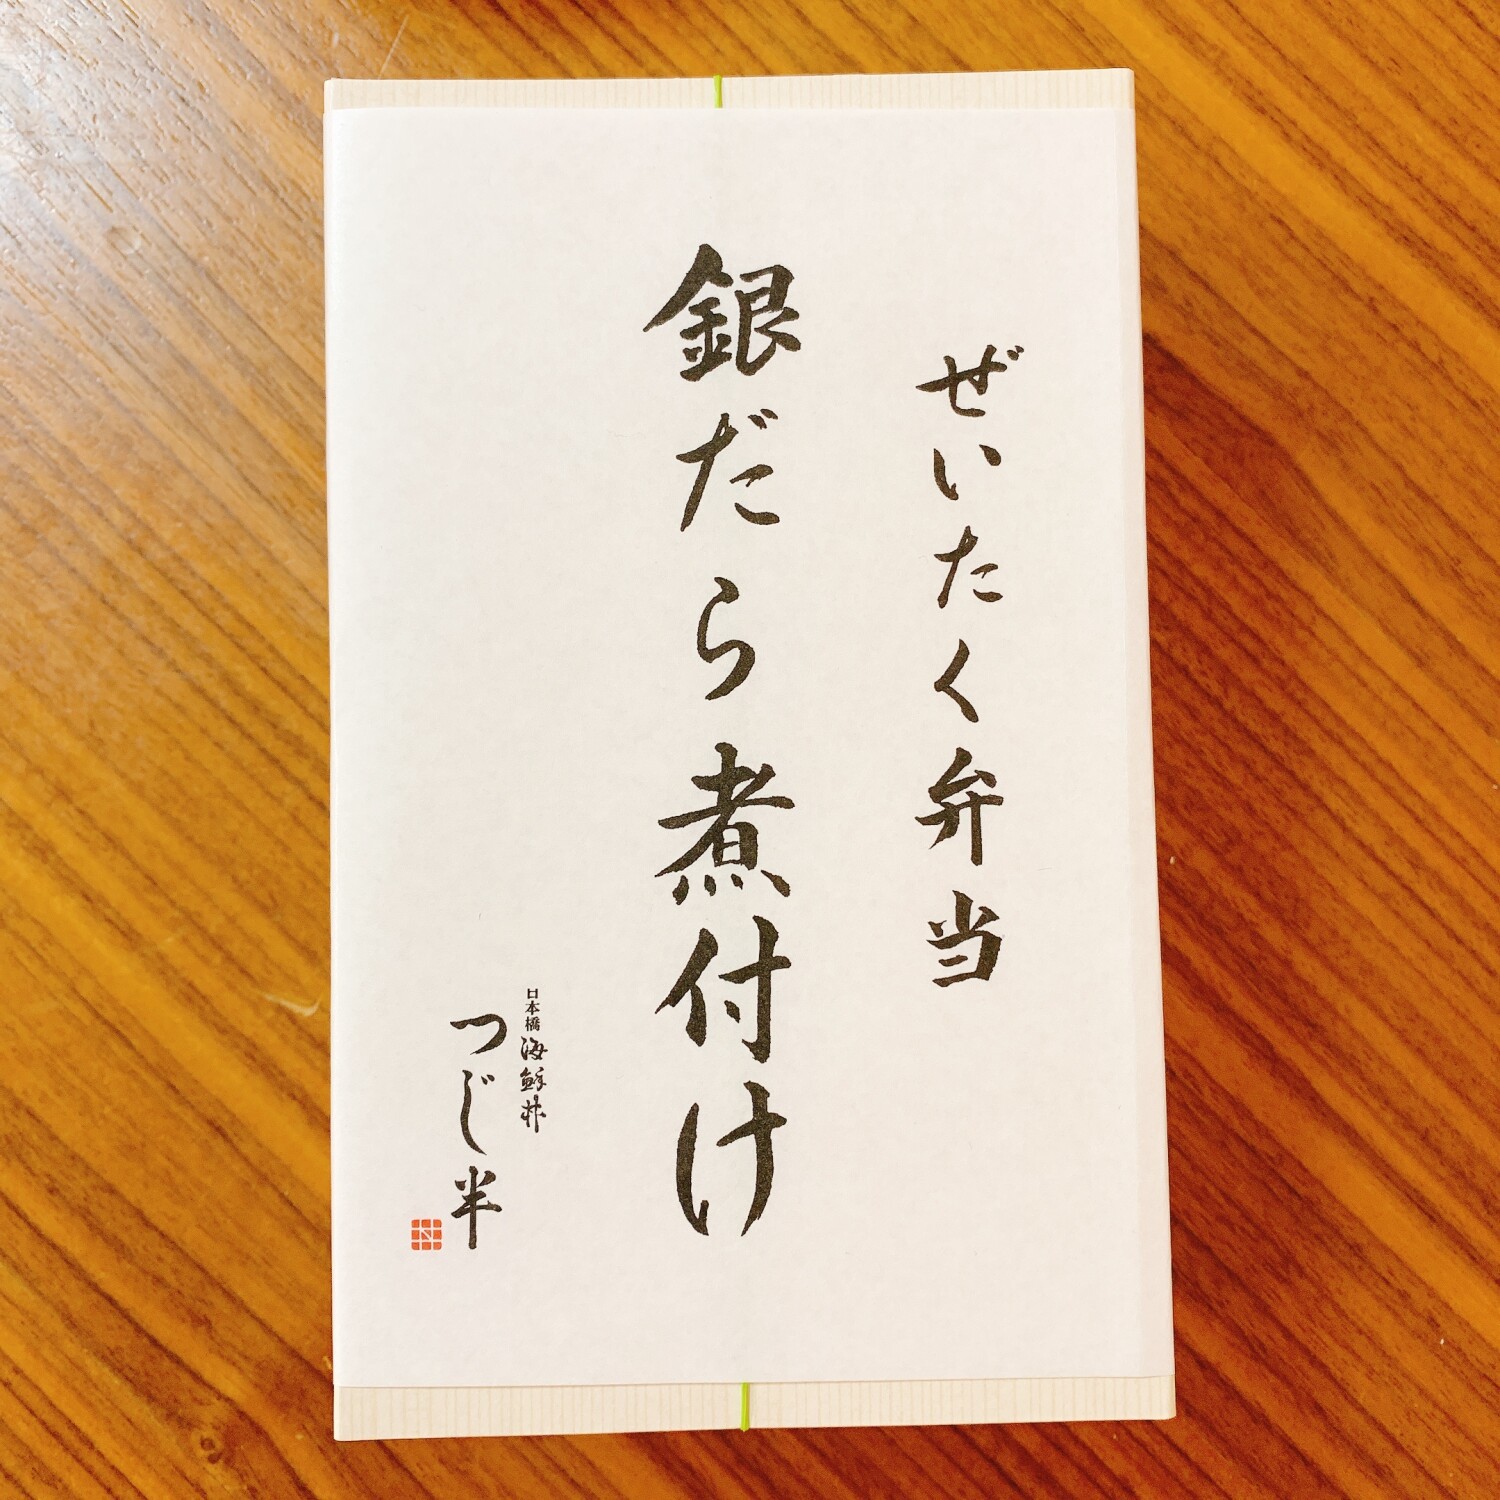 ぜいたく弁当
銀だら煮付け
日本橋海鮮丼
つじ半